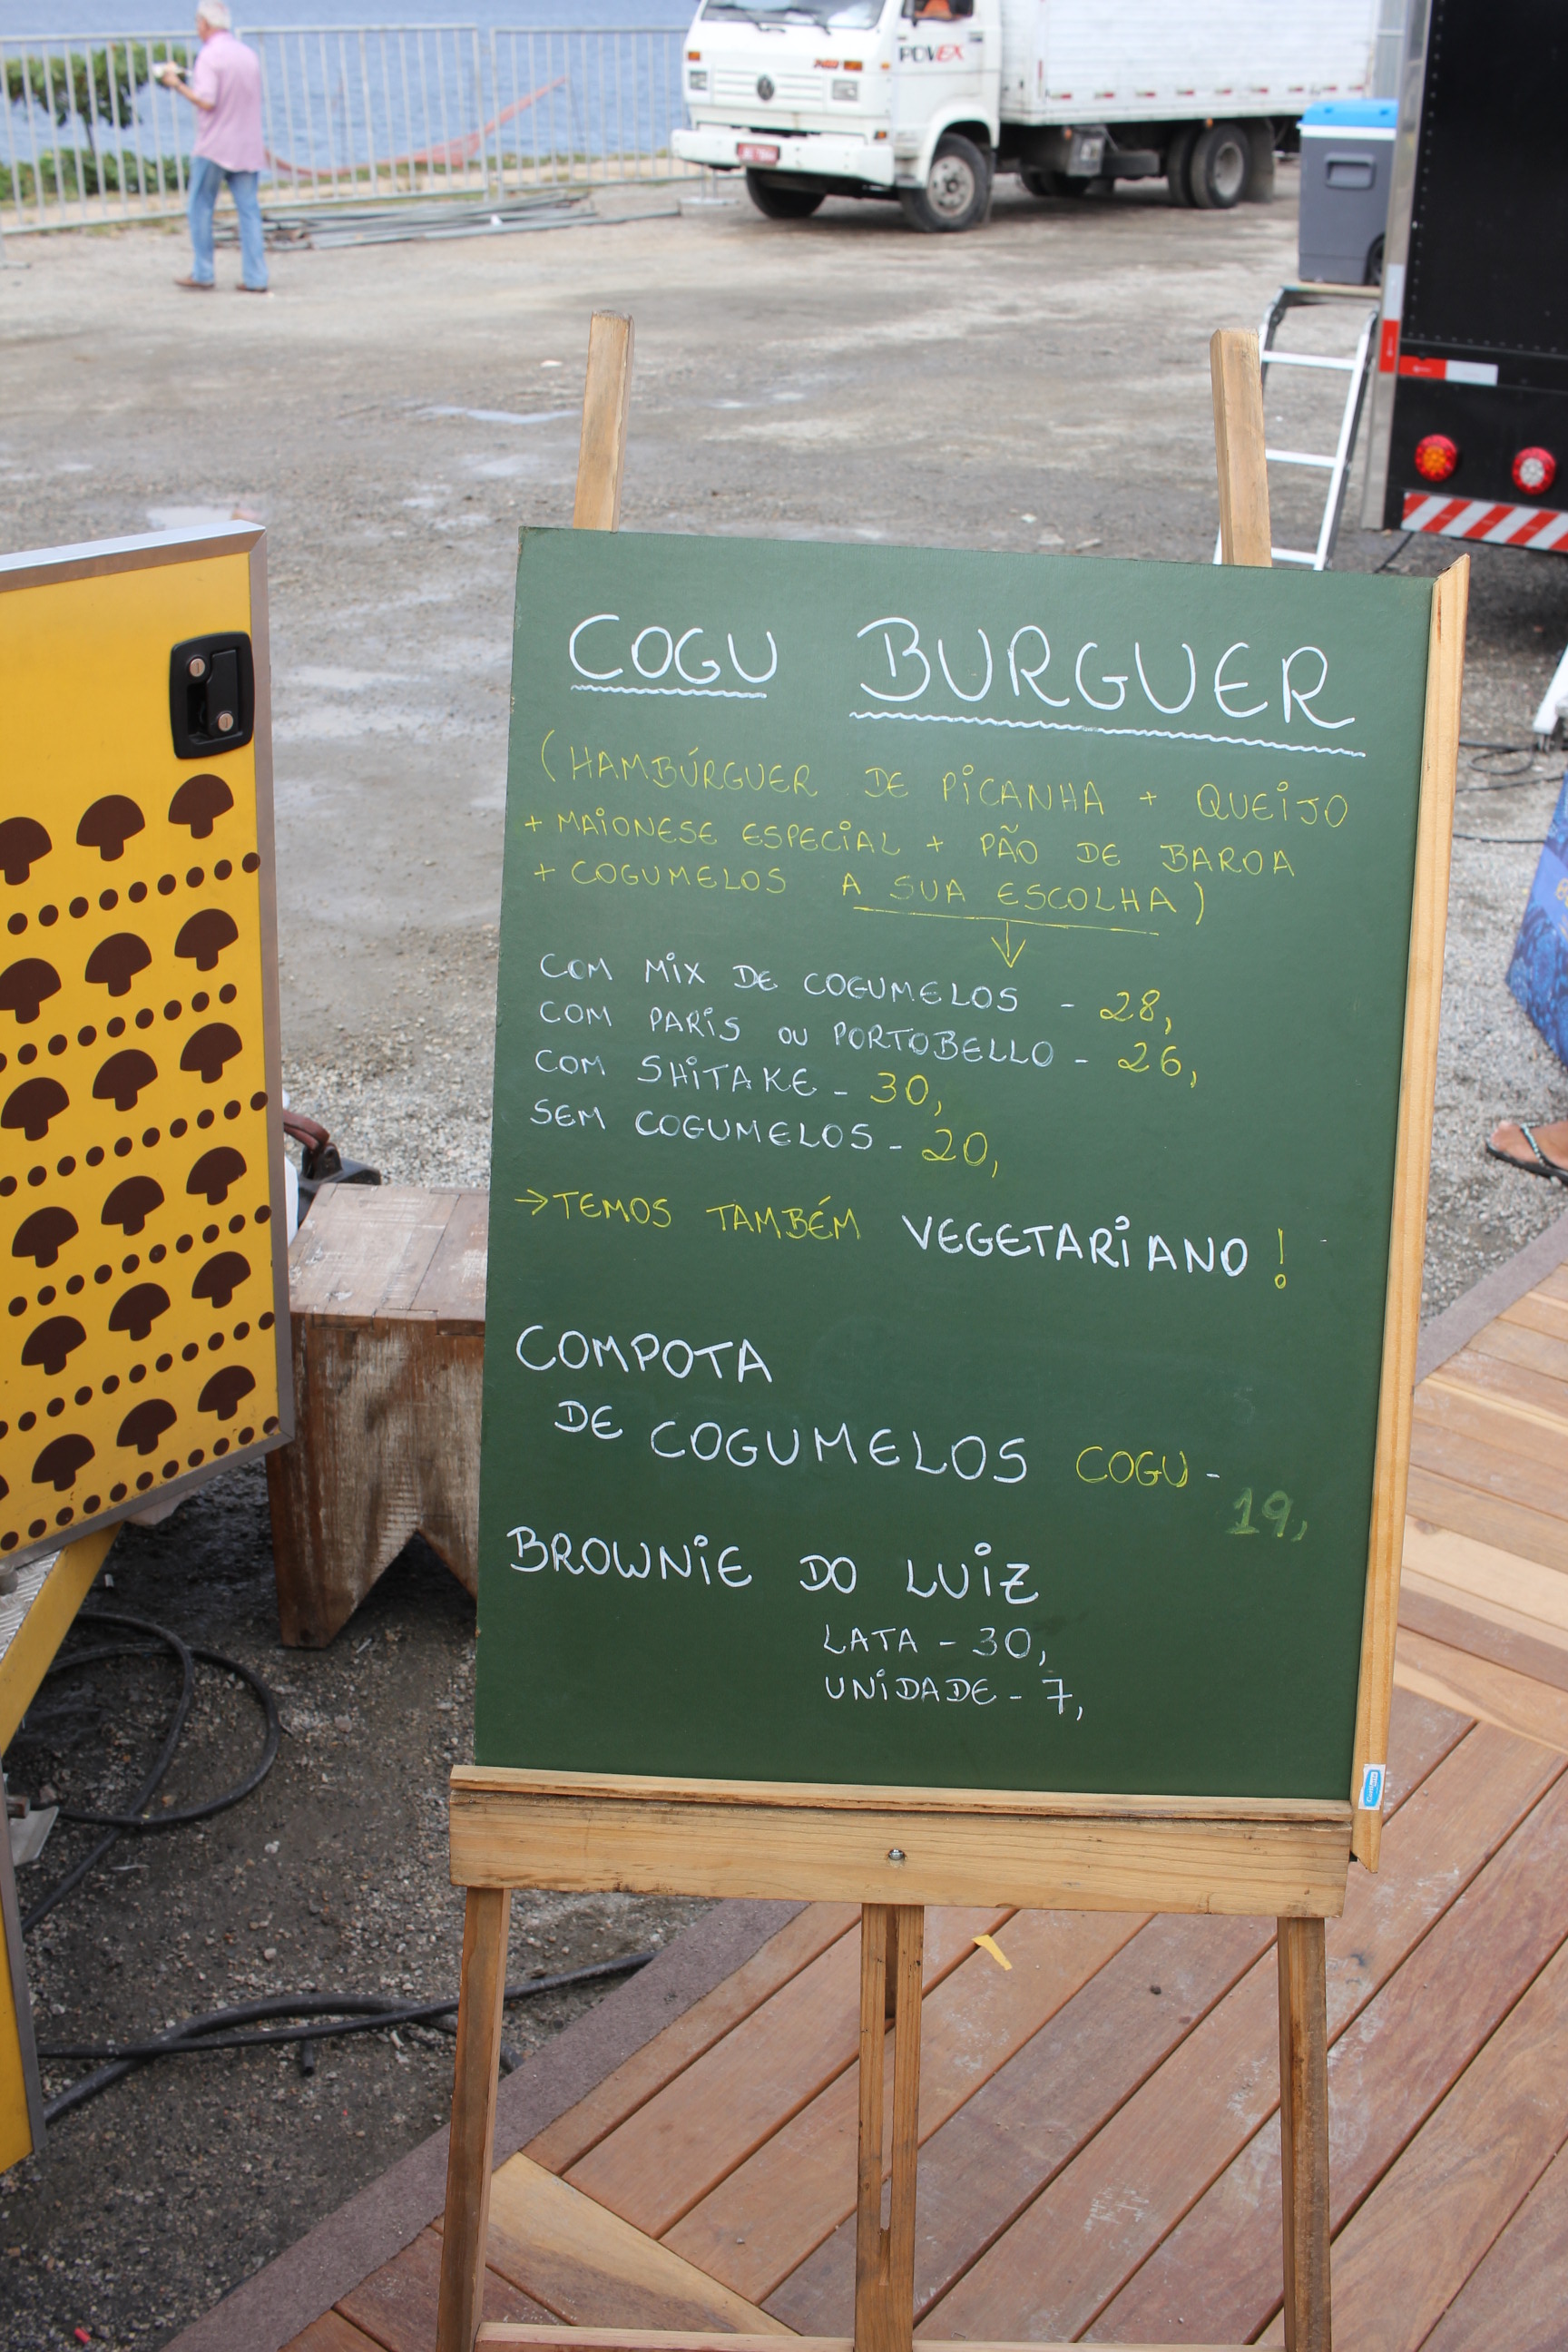 POVEX
COGU BURGUER
(HAMBÚRGUER DE PICANHA + QUEIJO
+ MAIONESE ESPECIAL + PÃO DE BAROA
+ COGUMELOS A SUA ESCOLHA)
COM MIX DE COGUMELOS - 28,
COM PARIS OU PORTOBELLO - 26,
COM SHITAKE - 30,
SEM COGUMELOS - 20,
→ TEMOS TAMBÉM VEGETARIANO!
COMPOTA
DE COGUMELOS COGU -
19,
BROWNIE DO LUIZ
LATA - 30,
UNIDADE - 7,